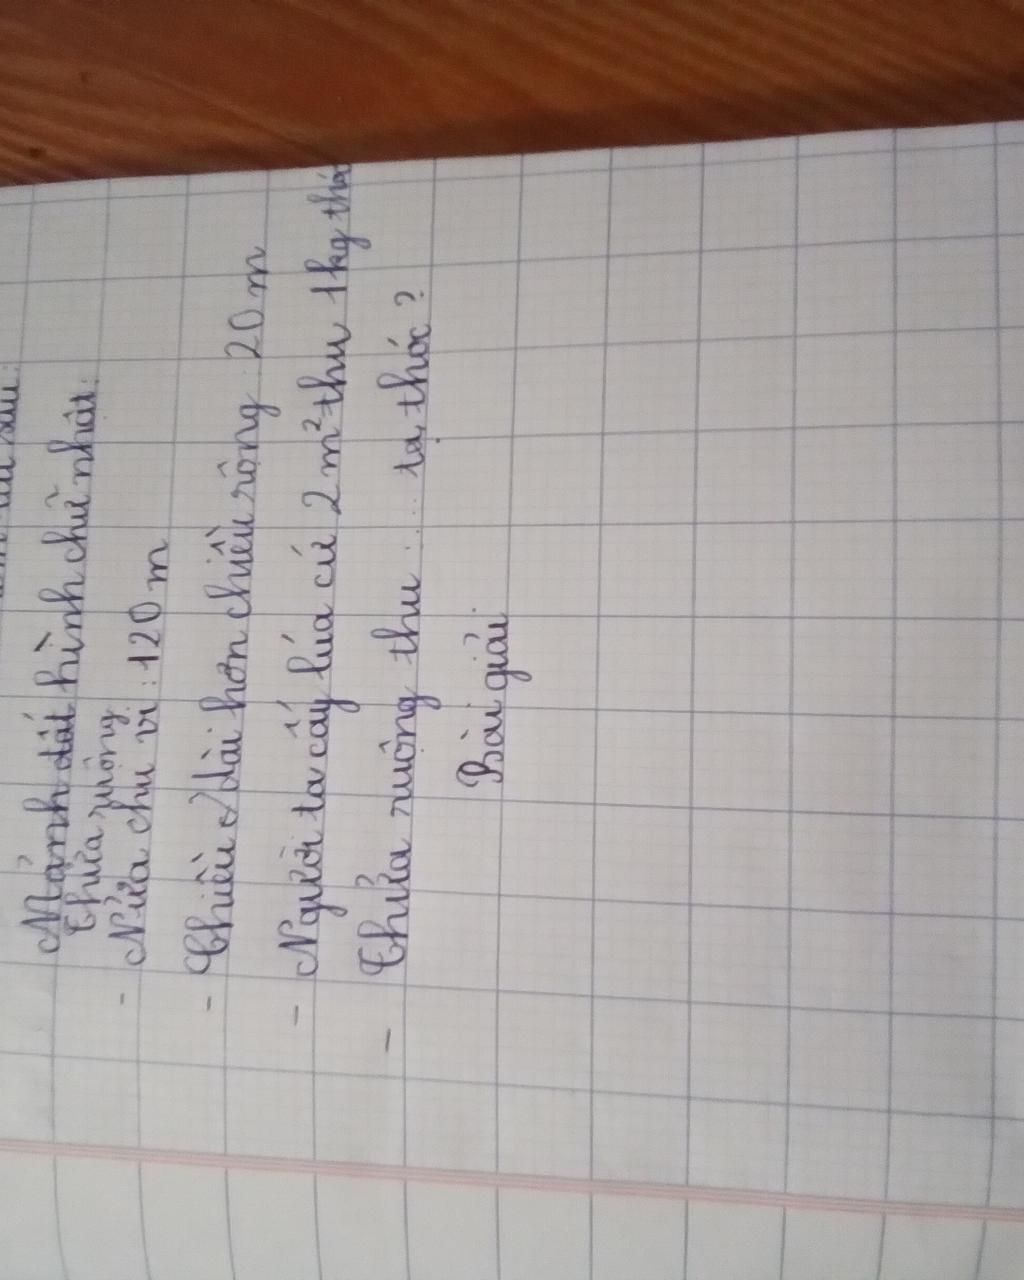 sau:
Mảnh đất hình chữ nhật:
Thửa ruộng
- Nửa chu vi : 120 m
- Chiều dài hơn chiều rộng 20 m
- Người ta cấy lúa cứ 2 m² thu 1 kg thó
- Thửa ruộng thu ..... tạ thóc ?
Bài giải: